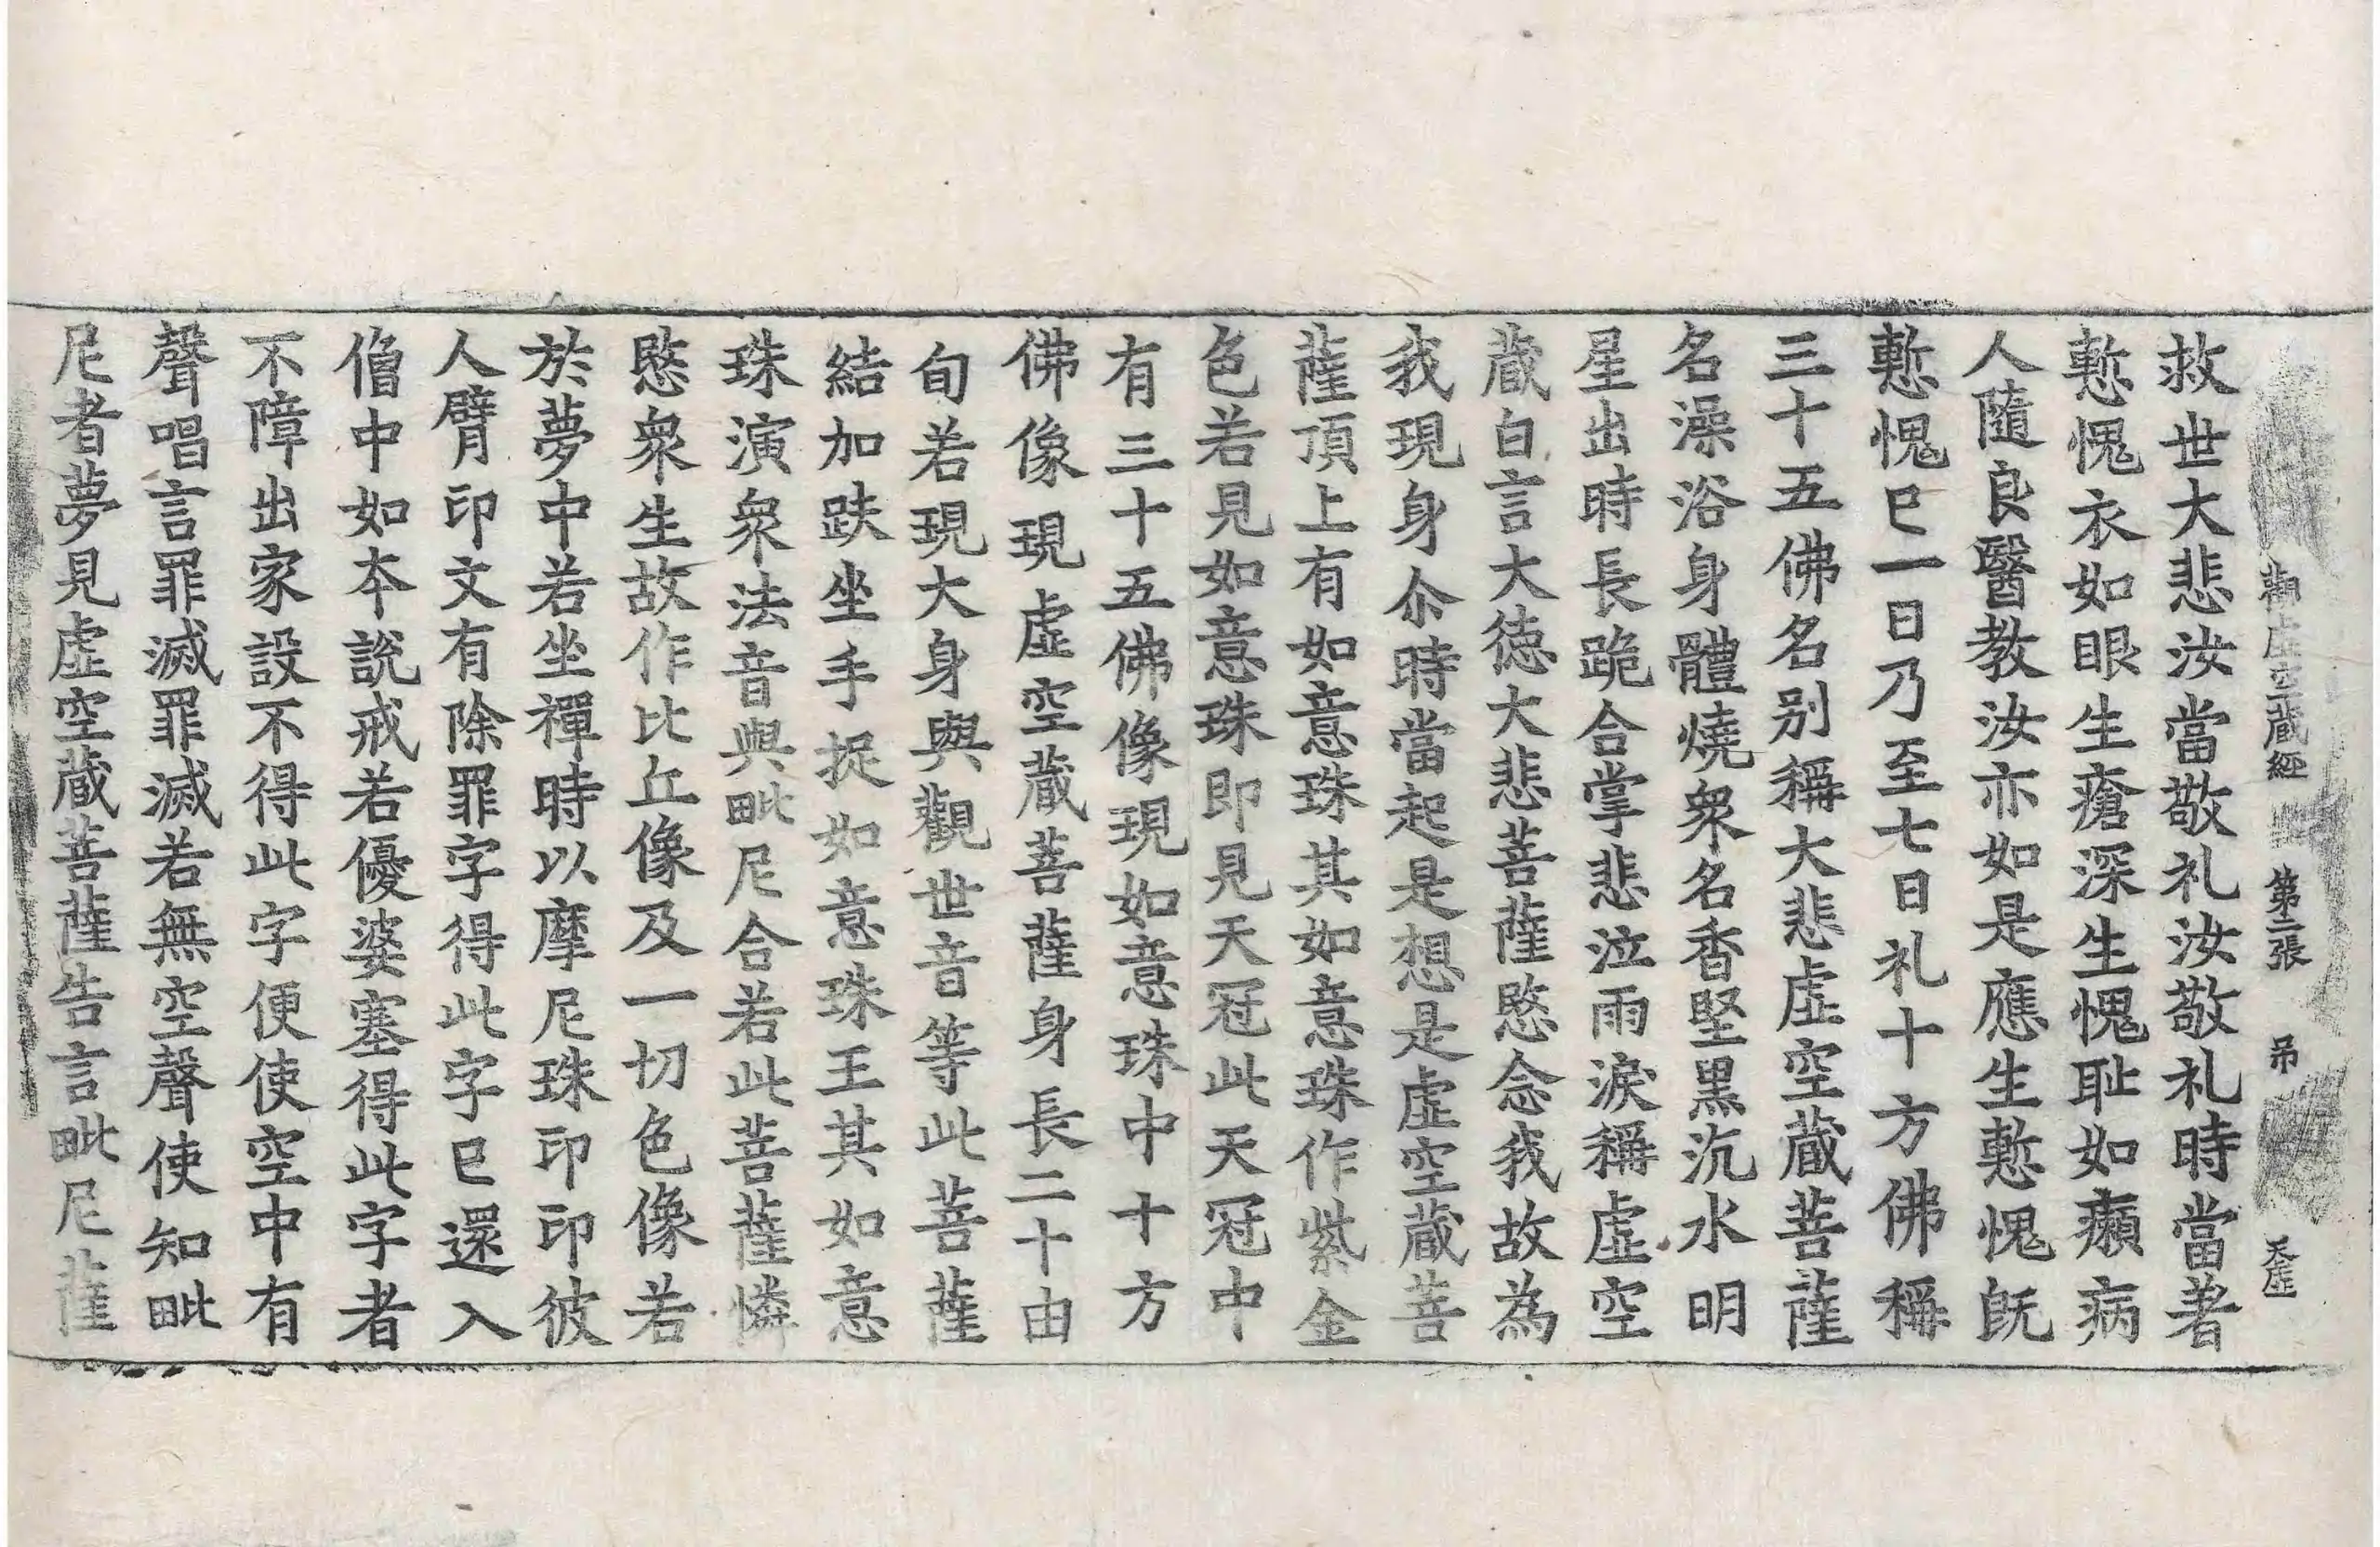 觀虛空藏經 第二張 吊 天虛
救世大悲汝當敬礼汝敬礼時當著
慙愧衣如眼生瘡深生愧耻如癩病
人隨良醫教汝亦如是應生慙愧旣
慙愧已一日乃至七日礼十方佛稱
三十五佛名别稱大悲虛空藏菩薩
名澡浴身體燒衆名香堅黒沉水明
星出時長跪合掌悲泣雨淚稱虛空
藏白言大德大悲菩薩愍念我故為
我現身尒時當起是想是虛空藏菩
薩頂上有如意珠其如意珠作紫金
色若見如意珠即見天冠此天冠中
有三十五佛像現如意珠中十方
佛像現虛空藏菩薩身長二十由
旬若現大身與觀世音等此菩薩
結加趺坐手捉如意珠王其如意
珠演衆法音與毗尼合若此菩薩憐
愍衆生故作比丘像及一切色像若
於夢中若坐禪時以摩尼珠印印彼
人臂印文有除罪字得此字已還入
僧中如本說戒若優婆塞得此字者
不障出家設不得此字便使空中有
聲唱言罪滅罪滅若無空聲使知毗
尼者夢見虛空藏菩薩告言毗尼薩